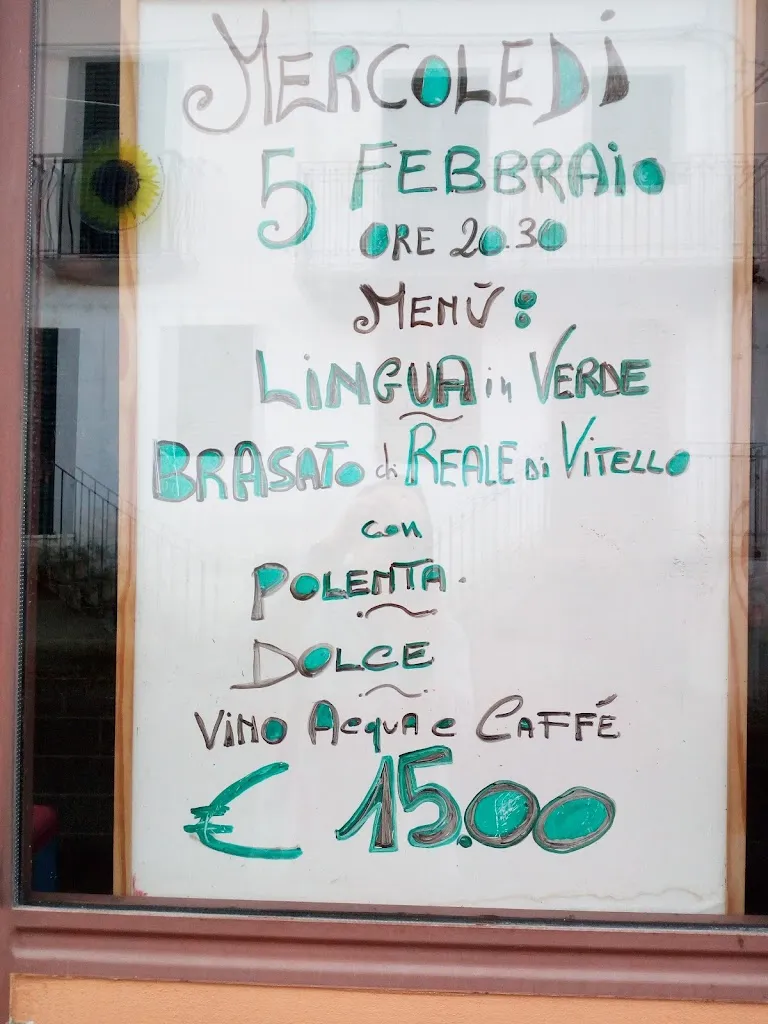 MERCOLEDì
5 FEBBRAiO
ORE 20.30
MENÙ:
LiNGUA in VERDE
BRASATO di REALE Di ViTELLO
con
POLENTA.
DOLCE
ViNO AcquA e CAFFÉ
€ 15.00